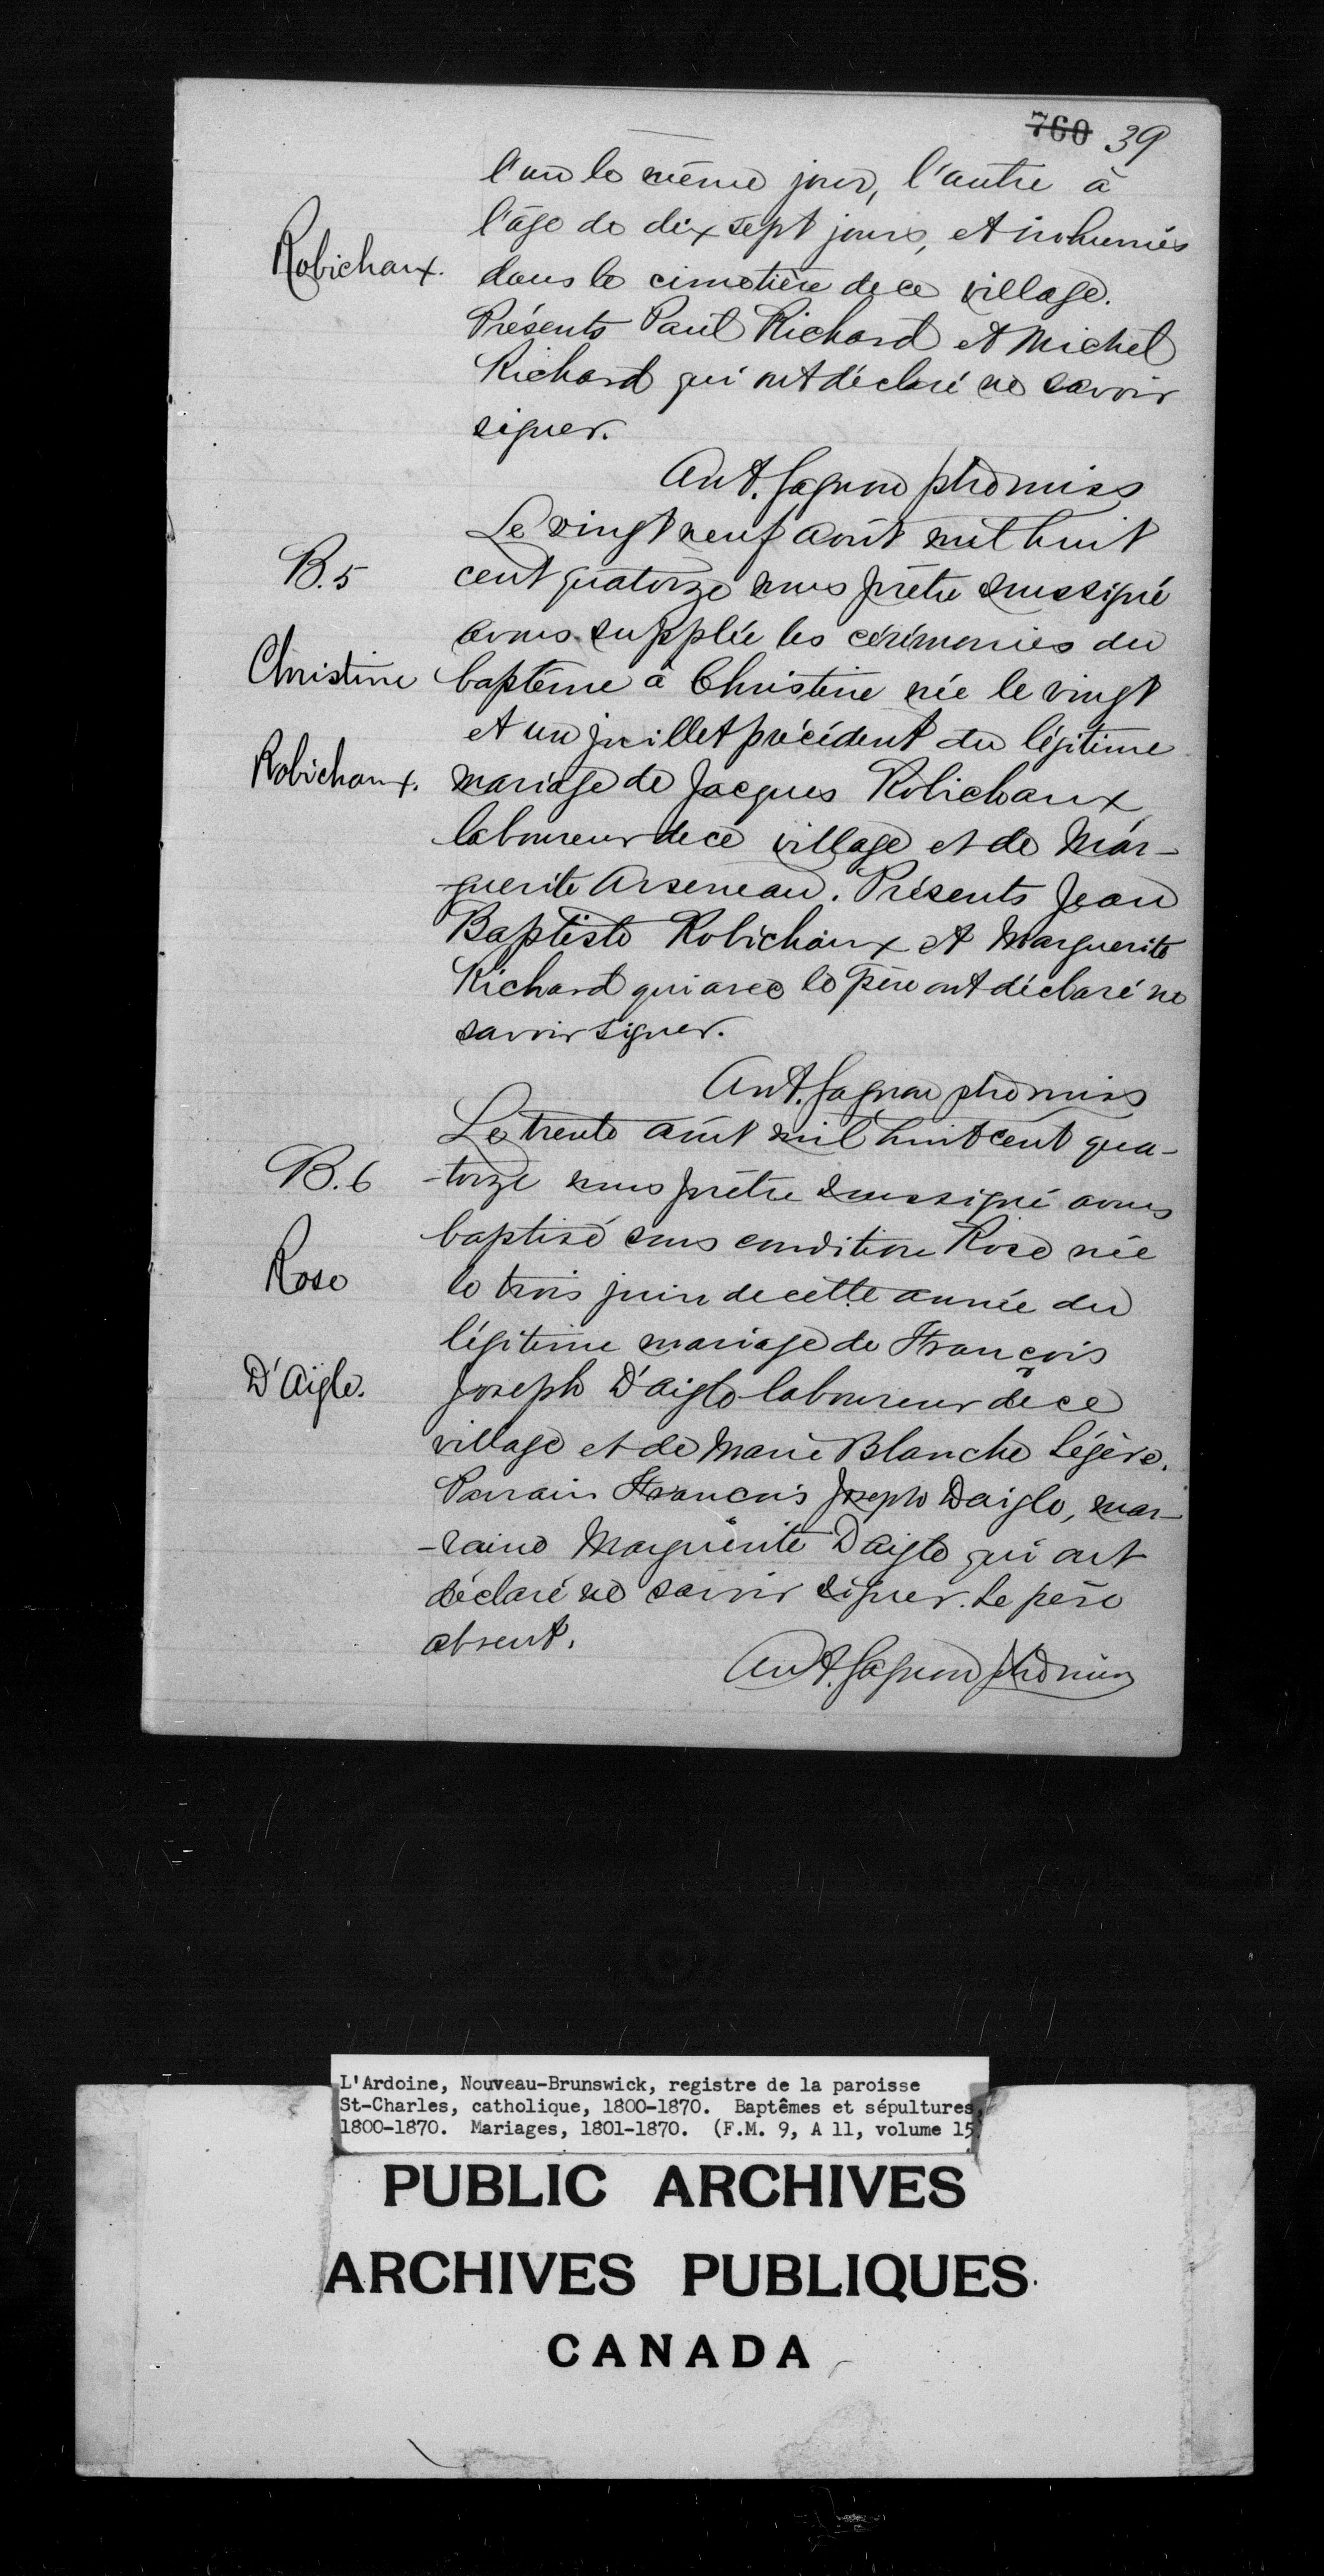 760 39
l'un le même jour, l'autre à
l'âge de dix sept jours, et inhumés
Robichaux.
dans le cimetière de ce village.
Présents Paul Richard et Michel
Richard qui ont déclaré ne savoir
signer.
Ant. Gagnon ptre miss
Le vingt neuf août mil huit
B.5
cent quatorze nous prêtre soussigné
avons supplée les cérémonies du
Christine
baptême à Christine née le vingt
et un juillet précédent du légitime
Robichaux.
mariage de Jacques Robichaux
laboureur de ce village et de Mar-
-guerite Arseneau. Présents Jean
Baptiste Robichaux et Marguerite
Richard qui avec le père ont déclaré ne
savoir signer.
Ant. Gagnon ptre miss
Le trente août mil huit cent qua-
B.6
-torze nous prêtre soussigné avons
baptisé sous condition Rose née
Rose
le trois juin de cette année du
légitime mariage de François
D'Aigle.
Joseph D'aigle laboureur de ce
village et de Marie Blanche Légère.
Parrain François Joseph Daigle, mar-
-raine Marguerite Daigle qui ont
déclaré ne savoir signer. Le père
absent.
Ant. Gagnon ptre miss
L'Ardoine, Nouveau-Brunswick, registre de la paroisse
St-Charles, catholique, 1800-1870. Baptêmes et sépultures,
1800-1870. Mariages, 1801-1870. (F.M. 9, A 11, volume 15)
PUBLIC ARCHIVES
ARCHIVES PUBLIQUES
CANADA